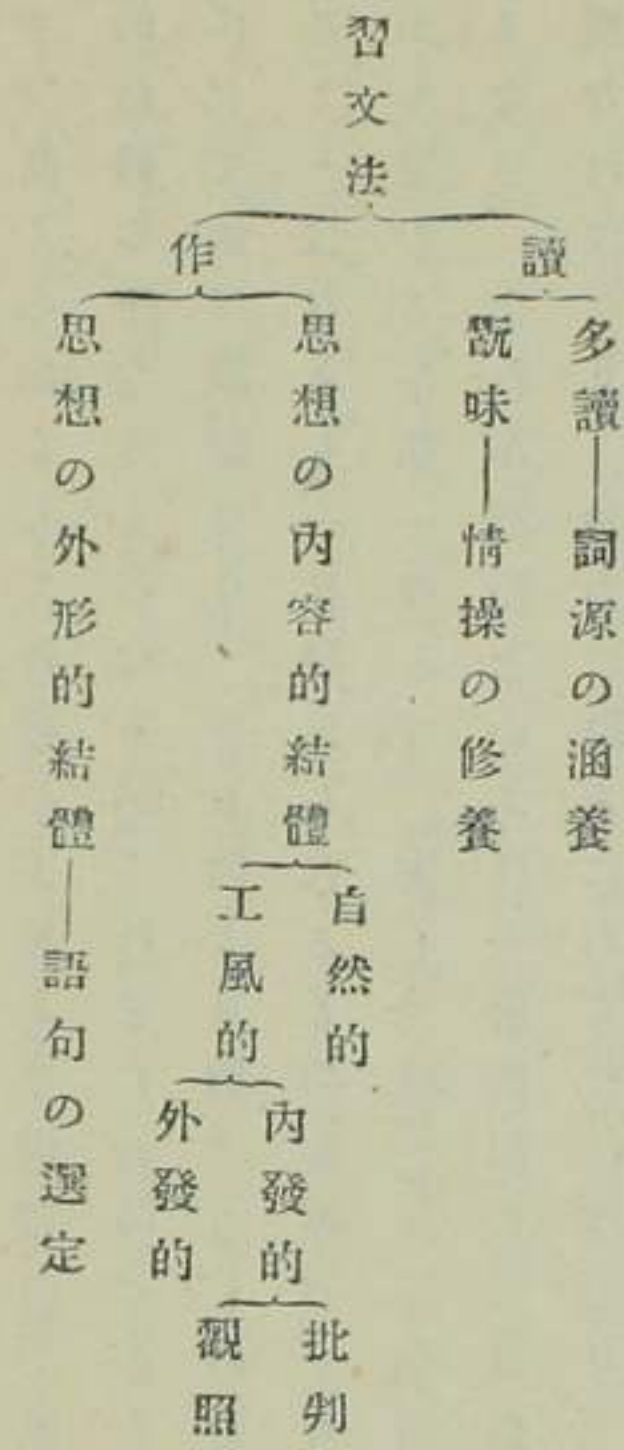 習文法
讀
多讀——詞源の涵養
翫味——情操の修養
作
思想の內容的結體
自然的
工風的
內發的
批判
觀照
外發的
思想の外形的結體——語句の選定